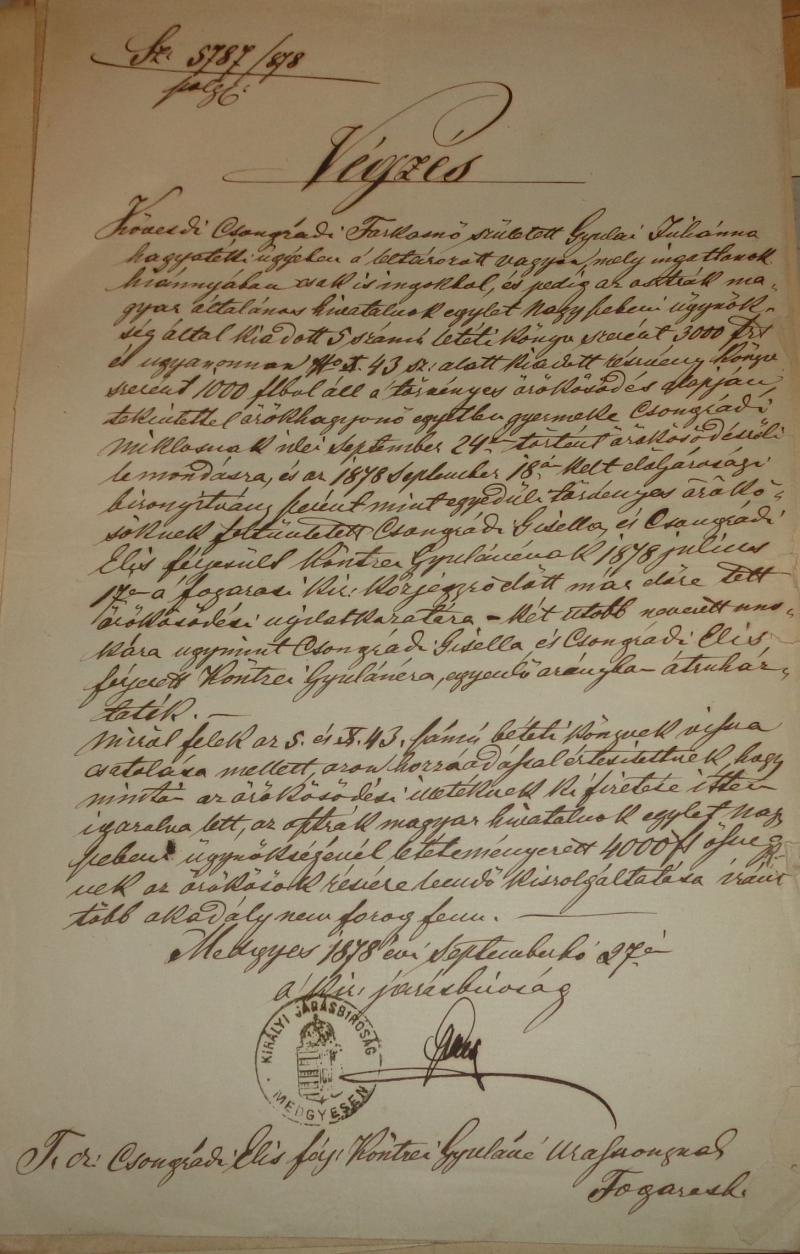 Sz. 5787/878
polg.
Végzés
Kövesdi Csongrádi Farkasnő született Gyulai Juliánna
hagyatéki ügyében a leltározott vagyon, mely ingatlanok
hiánnyában csak is ingokbol, és pedig az osztrák ma-
gyar általános hivatalnok egylet Nagy szebeni ügynök-
ség által kiadott 5 számú letéti könyv szerént 3000 frt
és ugyanonnan 43 sz. alatt kiadott részvény könyv
szerént 1000 flbol áll a törvényes örökösödés alapján,
tekintettel örökhagyonő egyetlen gyermeke Csongrádi
Miklosnak idei September 24-én történt örökösödésröli
lemondására, és az 1878 September 18-án kelt elöljárosági
bizonyitvány szerént mint egyedüli törvényes örökö-
söknek feltüntetett Csongrádi Gisella, és Csongrádi
Elis férjesült Köntzei Gyulánénak 1878 július
17-én a fogarasi kir. közjegyző előtt már előre tett
örökösödési nyilatkozatára – két utobb nevezett uno-
kára ugymint Csongrádi Gisella és Csongrádi Elis
férjezett Köntzei Gyulánéra, egyenlő arányban átruház-
taték. —
Miröl felek az 5. és 43. számú betéti könyvek vissza
csatolása mellett, azon hozzáadással értesittetnek, hogy
miután az örökösödési illetéknek kifizetése itten
igazolva lett, az osztrák magyar hivatalnok egylet Nagy
szebeni ügynökségénél letéteményezett 4000 fl összeg
nek az örökösök részére leendő kiszolgáltatása iránt
több akadály nem forog fenn. —
Medgyes 1878 évi Septemberhó 27-én
a kir. járásbiróság
KIRÁLYI JÁRÁSBIROSÁG
MEDGYESEN
T. cz. Csongrádi Elis férj. Köntzei Gyuláné urasszonynak
Fogarasb.